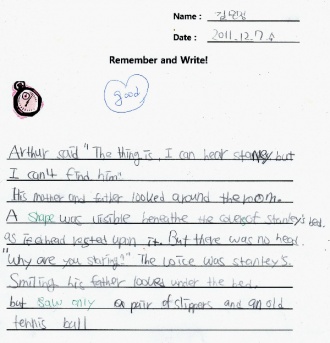 Name : 김민정
Date : 2011.12.7 수
Remember and Write!
good
Arthur said "The thing is, I can hear stanley but
I can't find him"
His mother and father looked around the room.
A shape was visible beneathe the covers of Stanley's bed,
as is a head rested upon it. But there was no head.
"Why are you staring?" The voice was stanley's.
Smiling his father looked under the bed,
but saw only a pair of slippers and an old
tennis ball